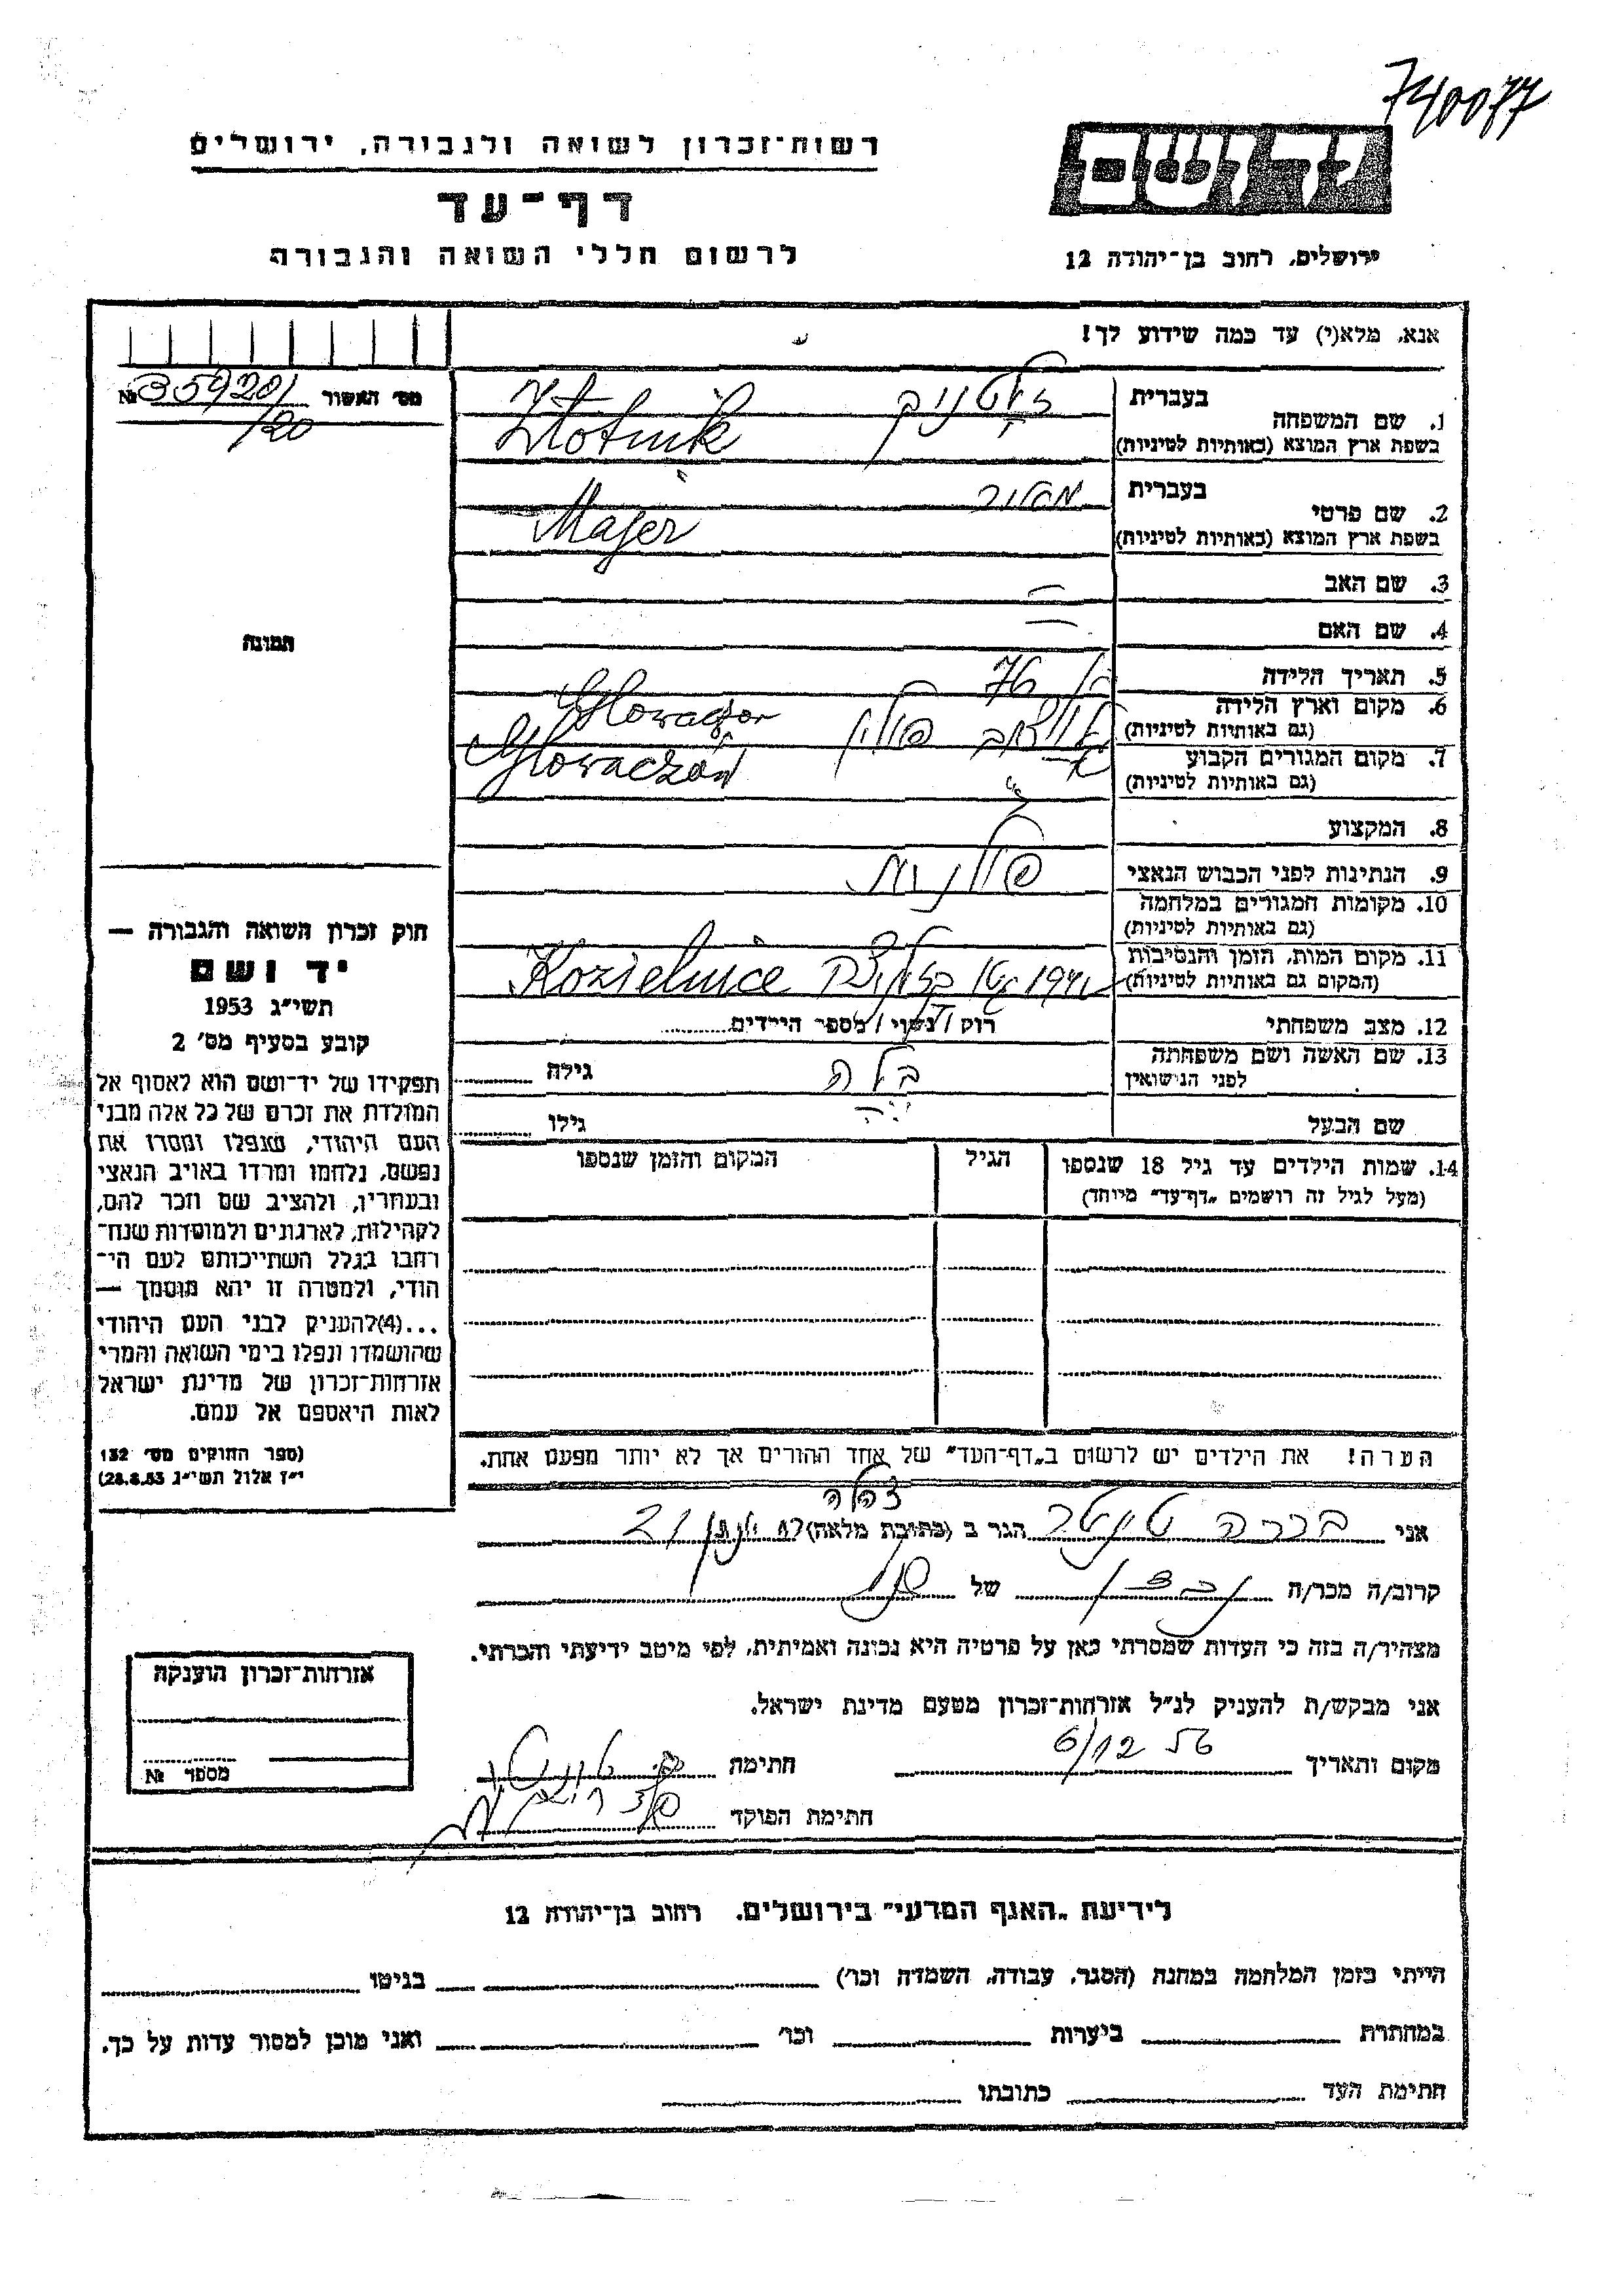 740077
יד ושם
ירושלים, רחוב בן-יהודה 12
רשות-זכרון לשואה ולגבורה, ירושלים
דף-עד
לרשום חללי השואה והגבורה
אנא, מלא(י) עד כמה שידוע לך!
מס׳ האשור № 35920/
/20
תמונה
1. שם המשפחה
בעברית זלוטניק
בשפת ארץ המוצא (באותיות לטיניות) Złotnik
2. שם פרטי
בעברית מאיר
בשפת ארץ המוצא (באותיות לטיניות) Majer
3. שם האב —
4. שם האם —
5. תאריך הלידה בן 76
6. מקום וארץ הלידה
(גם באותיות לטיניות) פולין
7. מקום המגורים הקבוע
(גם באותיות לטיניות) Głowaczów
8. המקצוע
9. הנתינות לפני הכבוש הנאצי פולנית
10. מקומות המגורים במלחמה
(גם באותיות לטיניות)
11. מקום המות, הזמן והנסיבות
(המקום גם באותיות לטיניות) 1941 Kozielnice
12. מצב משפחתי רווק / נשוי / מספר הילדים
13. שם האשה ושם משפחתה
לפני הנישואין בלה גילה
שם הבעל גילו
14. שמות הילדים עד גיל 18 שנספו
(מעל לגיל זה רושמים "דף-עד" מיוחד)
הגיל
המקום והזמן שנספו
הערה! את הילדים יש לרשום ב"דף-העד" של אחד ההורים אך לא יותר מפעם אחת.
חוק זכרון השואה והגבורה —
יד ושם
תשי"ג 1953
קובע בסעיף מס׳ 2
תפקידו של יד-ושם הוא לאסוף אל
המולדת את זכרם של כל אלה מבני
העם היהודי, שנפלו ומסרו את
נפשם, נלחמו ומרדו באויב הנאצי
ובעוזריו, ולהציב שם וזכר להם,
לקהילות, לארגונים ולמוסדות שנח-
רחבו בגלל השתייכותם לעם הי-
הודי, ולמטרה זו יהא מוסמך —
...(4)להעניק לבני העם היהודי
שהושמדו ונפלו בימי השואה והמרי
אזרחות-זכרון של מדינת ישראל
לאות היאספם אל עמם.
(ספר החוקים מס׳ 132
י"ז אלול תשי"ג 28.8.53)
אני ברכה הגר ב (כתובת מלאה) 21
קרוב/ה מכר/ה נכדו של
מצהיר/ה בזה כי העדות שמסרתי כאן על פרטיה היא נכונה ואמיתית, לפי מיטב ידיעתי והכרתי.
אני מבקש/ת להעניק לנ"ל אזרחות-זכרון מטעם מדינת ישראל.
מקום ותאריך 6/12 56 חתימה
חתימת הפוקד
אזרחות-זכרון הוענקה
מספר №
לידיעת "האגף המדעי" בירושלים, רחוב בן-יהודה 12
הייתי בזמן המלחמה במחנה (הסגר, עבודה, השמדה וכו׳) בגיטו
במחתרת ביערות וכו׳ ואני מוכן למסור עדות על כך.
חתימת העד כתובתו